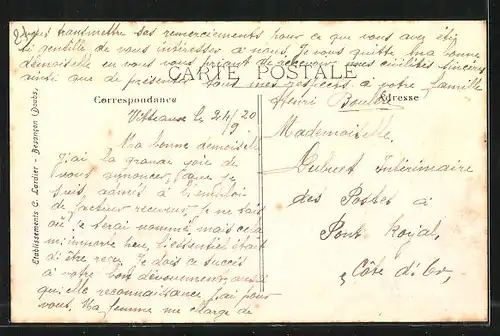 vous transmettre ses remerciements pour ce que vous avez été
si gentille de vous intéresser à nous. Je vous quitte ma bonne
demoiselle en vous priant de recevoir mes civilités sincères
ainsi que de présenter tous mes respects à votre famille
CARTE POSTALE
Henri
Correspondance
Adresse
le 24/20
9
Ma bonne demoiselle
J'ai la grande joie de
vous annoncer que je
suis admis à l'emploi
de facteur receveur, je ne sais
où je serai nommé, mais cela
m'importe peu, l'essentiel était
d'être reçu. Je dois ce succès
à votre bon dévouement, aussi
quelle reconnaissance j'ai pour
vous. Ma femme me charge de
Mademoiselle
Intérimaire
des Postes à
Pont Royal,
Côte d'Or,
Etablissements C. Lardier - Besançon (Doubs)